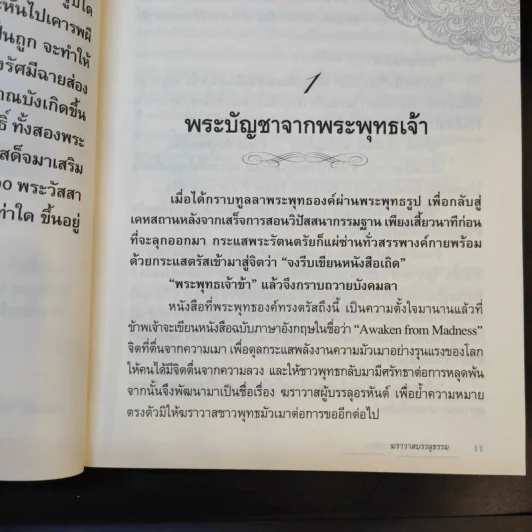 รูปใด
ะหันไปเคารพผี
ป็นถูก จะทำให้
งรัศมีฉายส่อง
าณบังเกิดขึ้น
ธิ์ ทั้งสองพระ
สด็จมาเสริม
๐๐ พระวัสสา
ท่าใด ขึ้นอยู่
1
พระบัญชาจากพระพุทธเจ้า
เมื่อได้กราบทูลลาพระพุทธองค์ผ่านพระพุทธรูป เพื่อกลับสู่
เคหสถานหลังจากเสร็จการสอนวิปัสสนากรรมฐาน เพียงเสี้ยวนาทีก่อน
ที่จะลุกออกมา กระแสพระรัตนตรัยก็แผ่ซ่านทั่วสรรพางค์กายพร้อม
ด้วยกระแสตรัสเข้ามาสู่จิตว่า “จงรีบเขียนหนังสือเถิด”
“พระพุทธเจ้าข้า” แล้วจึงกราบถวายบังคมลา
หนังสือที่พระพุทธองค์ทรงตรัสถึงนี้ เป็นความตั้งใจมานานแล้วที่
ข้าพเจ้าจะเขียนหนังสือฉบับภาษาอังกฤษในชื่อว่า “Awaken from Madness”
จิตที่ตื่นจากความเมา เพื่อดุลกระแสพลังงานความมัวเมาอย่างรุนแรงของโลก
ให้คนได้มีจิตตื่นจากความลวง และให้ชาวพุทธกลับมามีศรัทธาต่อการหลุดพ้น
จากนั้นจึงพัฒนามาเป็นชื่อเรื่อง ฆราวาสผู้บรรลุอรหันต์ เพื่อย้ำความหมาย
ตรงตัวมิให้ฆราวาสชาวพุทธมัวเมาต่อการขออีกต่อไป
ฆราวาสบรรลุธรรม 11